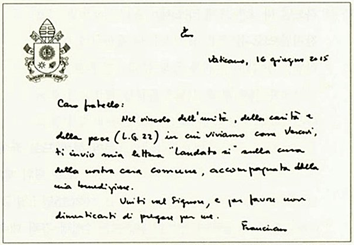 Vaticano, 16 giugno 2015
Caro fratello:
Nel vincolo dell'unità, della carità e
della pace (L.G. 22) in cui viviamo come Vescovi,
ti invio mia lettera "Laudato si'" sulla cura
della nostra casa comune, accompagnata dalla
mia benedizione.
Uniti nel Signore, e per favore non
dimenticarti di pregare per me.
Francisco